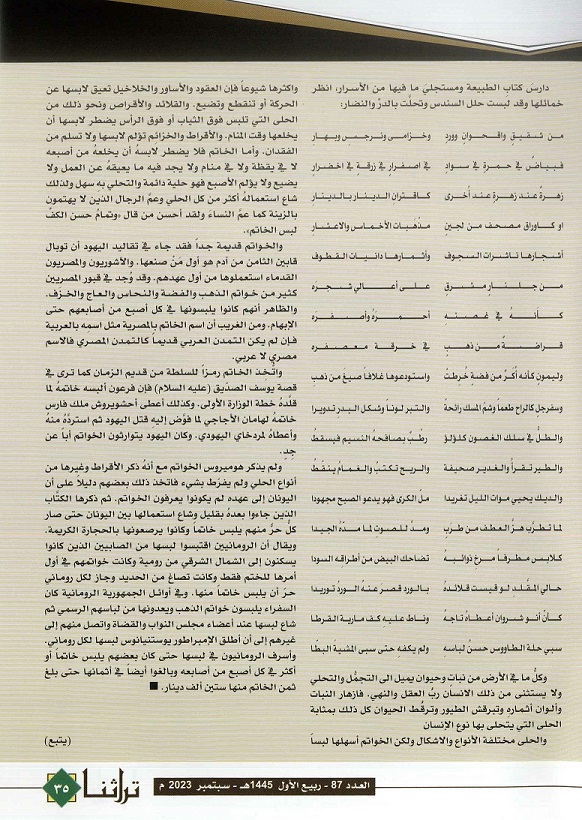 دارسَ كتابِ الطبيعة ومستجليَ ما فيها من الأسرار، انظر
خمائلها وقد لبست حلل السندس وتحلّت بالدرِّ والنضار:
من شقيقٍ واقحوانٍ ووردٍ وخزامى ونرجس وبهارِ
فبياضٌ في حمرة في سوادٍ في اصفرارٍ في زرقةٍ في اخضرارِ
زهرةٌ عند زهرةٍ عند أُخرى كاقتران الدينار بالدينارِ
او كاوراق مصحف من لجينٍ مذهّبات الأخماس والاعشارِ
أشجارها ناشرات السجوف وأثمارها دانيات القطوف
من جلنارٍ مشرقٍ على أعالي شجره
كأنه في غصنه أحمره وأصفره
قراضةٌ من ذهبٍ في خرقة معصفره
وليمون كأنه أُكرٌ من فضةٍ خُرطتْ واستودعوها غلافاً صيغ من ذهب
وسفرجل كالراح طعماً وشمّ المسك رائحةً والتبر لوناً وشكل البدر تدويرا
والطلُّ في سلك الغصون كلؤلؤٍ رطبٌ يصافحه النسيم فيسقطُ
والطير تقرأُ والغدير صحيفة والريح تكتبُ والغمامُ ينقّطُ
والديك يحيي موات الليل تغريدا ملّ الكرى فهو يدعو الصبح مجهودا
لما تطرَّب هزَّ العطف من طربٍ ومدَّ للصوتِ لما مدَّهُ الجيدا
كلابس مطرفاً مرخٍ ذوائبهُ تضاحك البيض من أطرافه السودا
حالي المقلَّد لو قيست قلائدهُ بالورد قصرَ عنه الوردُ توريدا
كأنَّ أنو شروان أعطاهُ تاجهُ وناط عليه كف مارية القرطا
سبى حلة الطاووس حسنُ لباسه ولم يكفهِ حتى سبى المشيةَ البطّا
وكلُّ ما في الأرض من نبات وحيوان يميل الى التجمُّل والتحلي
ولا يستثنى من ذلك الانسان ربُّ العقل والنهي. فازهار النبات
وألوان أثماره وتبرقش الطيور وترقُّط الحيوان كل ذلك بمثابة
الحلى التي يتحلى بها نوع الإنسان
والحلى مختلفة الأنواع والاشكال ولكن الخواتم أسهلها لبساً
واكثرها شيوعاً فإن العقود والأساور والخلاخيل تعيق لابسها عن
الحركة أو تنقطع وتضيع. والقلائد والأقراص ونحو ذلك من
الحلى التي تلبس فوق الثياب أو فوق الرأس يضطر لابسها أن
يخلعها وقت المنام. والأقراط والخزائم تؤلم لابسها ولا تسلم من
الفقدان. وأما الخاتم فلا يضطر لابسهُ أن يخلعهُ من أصبعه
لا في يقظة ولا في منام ولا يجد فيه ما يعيقهُ عن العمل ولا
يضيع ولا يؤلم الأصبع فهو حلية دائمة والتحلي به سهل ولذلك
شاع استعمالهُ أكثر من كل الحلي وعمَّ الرجال الذين لا يهتمون
بالزينة كما عمَّ النساء ولقد أحسن من قال «وتمامُ حسن الكف
لبس الخاتم».
والخواتم قديمة جداً فقد جاء في تقاليد اليهود أن توبال
قايين الثامن من آدم هو أول مَنْ صنعها. والأشوريون والمصريون
القدماء استعملوها من أول عهدهم. وقد وُجد في قبور المصريين
كثير من خواتم الذهب والفضة والنحاس والعاج والخزف.
والظاهر أنهم كانوا يلبسونها في كل أصبع من أصابعهم حتى
الإبهام. ومن الغريب أن اسم الخاتم بالمصرية مثل اسمه بالعربية
فإن لم يكن التمدن العربي قديماً كالتمدن المصري فالاسم
مصري لا عربي.
واتُّخذ الخاتم رمزاً للسلطة من قديم الزمان كما ترى في
قصة يوسف الصدّيق (عليه السلام) فإن فرعون ألبسه خاتمهُ لما
قلَّدهُ خطة الوزارة الأولى. وكذلك أعطى أحشويروش ملك فارس
خاتمهُ لهامان الأجاجي لما فوَّض إليه قتل اليهود ثم استردَّهُ منهُ
وأعطاهُ لمردخاي اليهودي. وكان اليهود يتوارثون الخواتم أباً عن
جدٍ.
ولم يذكر هوميروس الخواتم مع أنهُ ذكر الأقراط وغيرها من
أنواع الحلي ولم يفرّط بشيء فاتخذ ذلك بعضهم دليلاً على أن
اليونان إلى عهده لم يكونوا يعرفون الخواتم. ثم ذكرها الكتَّاب
الذين جاءوا بعدهُ بقليل وشاع استعمالها بين اليونان حتى صار
كلُّ حرٍّ منهم يلبس خاتماً وكانوا يرصعونها بالحجارة الكريمة.
ويقال أن الرومانيين اقتبسوا لبسها من الصابيين الذين كانوا
يسكنون إلى الشمال الشرقي من رومية وكانت خواتمهم في أول
أمرها للختم فقط وكانت تصاغ من الحديد وجاز لكل روماني
حرّ أن يلبس خاتماً منها. وفي أوائل الجمهورية الرومانية كان
السفراء يلبسون خواتم الذهب ويعدونها من لباسهم الرسمي ثم
شاع لبسها عند أعضاء مجلس النواب والقضاة واتصل منهم إلى
غيرهم إلى أن أطلق الإمبراطور يوستنيانوس لبسها لكل روماني.
وأسرف الرومانيون في لبسها حتى كان بعضهم يلبس خاتماً أو
أكثر في كل أصبع من أصابعه وبالغوا أيضاً في أثمانها حتى بلغ
ثمن الخاتم منها ستين ألف دينار. ■
(يتبع)
العدد 87 - ربيع الأول 1445هـ - سبتمبر 2023 م
تراثنا ٣٥